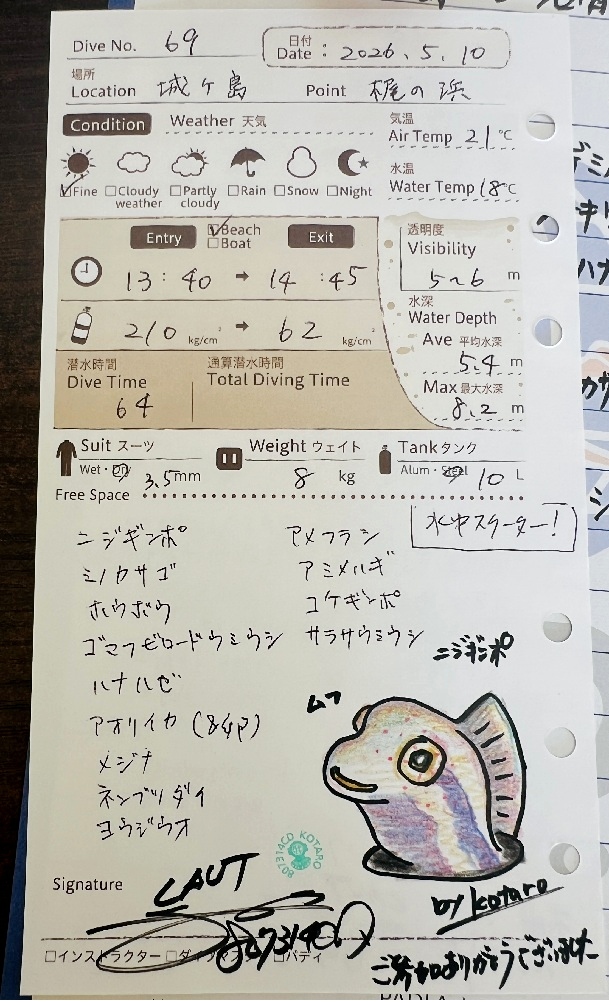 Dive No. 69
日付
Date : 2026.5.10
場所
Location 城ヶ島 Point 梶の浜
Condition Weather 天気
気温
Air Temp 21℃
水温
Water Temp 18℃
Fine Cloudy weather Partly cloudy Rain Snow Night
Entry Beach Boat Exit
13:40 → 14:45
210 kg/cm² → 62 kg/cm²
透明度
Visibility
5~6 m
水深
Water Depth
Ave 平均水深
5.4 m
Max 最大水深
8.2 m
潜水時間
Dive Time
64
通算潜水時間
Total Diving Time
Suit スーツ
Wet・Dry 3.5mm
Weight ウェイト
8 kg
Tank タンク
Alum・Steel 10 L
Free Space
水中スクーター!
ニジギンポ
ミノカサゴ
ホウボウ
ゴマフビロードウミウシ
ハナハゼ
アオリイカ(&卵)
メジナ
ネンブツダイ
ヨウジウオ
アメフラシ
アミメハギ
コケギンポ
サラサウミウシ
ニジギンポ
ムフ
807314CD KOTARO
by kotaro
Signature
LAUT
インストラクター ダイブマスター バディ
ご参加ありがとうございました